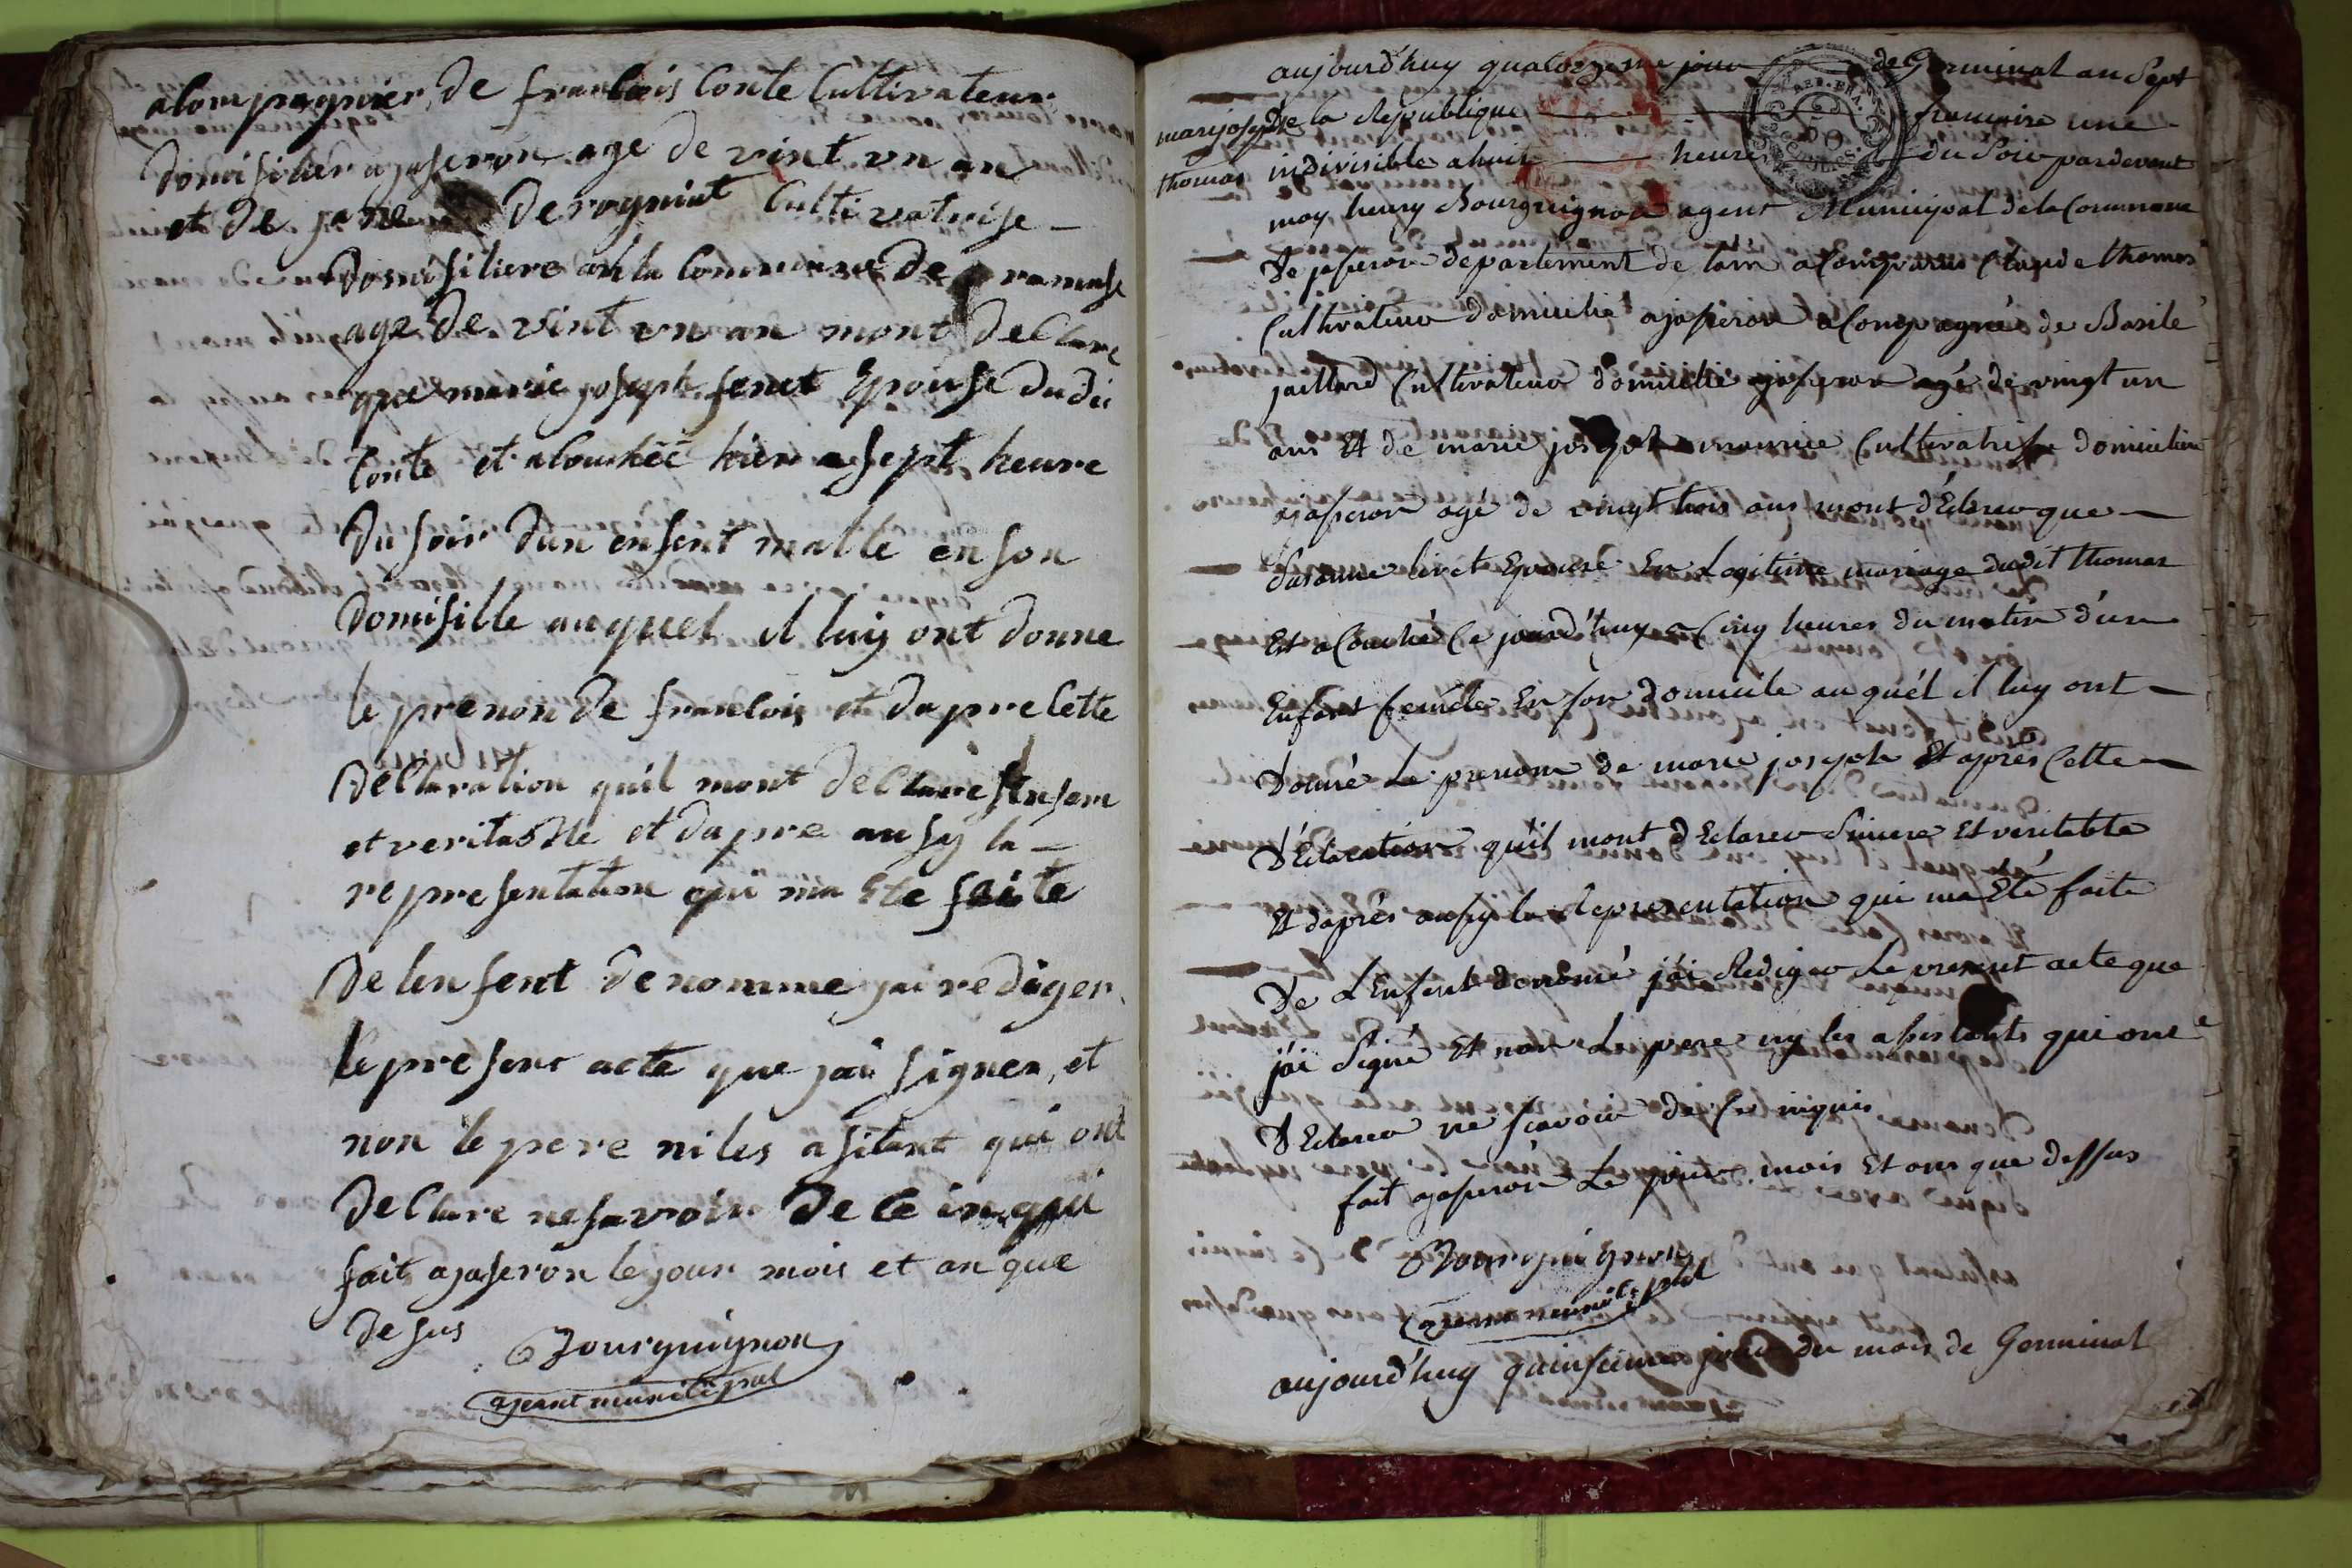 acompagnier de francois Conte Cultivateur
domisilier a jaseron age de vint un an
et de Derognint Cultivatrise
domisiliere an la Commune de ramase
age de vint un an mont declare
que marie joseph fenet Epouse dudi
Conte et acouchéé hier a sept heure
du soir dun enfent malle en son
domisille auquel il luy ont donne
le prenon de francois et dapre cette
declaration quil mont declare sinsere
et veritable et dapre ausy la
representation qui ma Ete faite
de lenfent denomme jai rediger
le presenc acte que jai signer, et
non le pere ni les asitant qui ont
declare ne savoir de ce inqui
fait a jaseron le jour mois et an que
desus
Bourguignon
ageant municipal
marijosephe
thomas
aujourd'huy quatorzieme jour de Germinal an Sept
de la Republique francoise une
indivisible a huit heures du Soir pardevent
moy henry Bourguignon agent Municipal de la Commune
de jaseron departement de lain a Comparus Claude thomas
Cultivateur domicilié a jaseron aCompagné de Basile
jaillard Cultivateur domicilie a jaseron agé de vingt un
ans Et de marie joseph mournice Cultivatrisse domiciliere
a jaseron agé de vingt trois ans mont dEclarer que
Susanne livet Epouse En Legitime mariage dudit thomas
Est aCouché Ce jourd'huy a Cinq heures du matin d'un
Enfant femele En son domicile auquél il luy ont
donné Le prenom de marie joseph Et après Cette
dEclaration qu'il mont dEclarer Sincere Et veritable
Et daprès aussy la Representation qui ma Eté faite
De L'Enfent denomé j'ai Rediger Le present acte que
j'ai Signé Et non Le pere ny les assistants qui ont
dEclarer ne scavoir de Ce inquis
fait a jaseron Le jour, mois Et ans que dessus
Bourguignon
agent municipal
aujourd'huy quinsieme jour du mois de Germinal